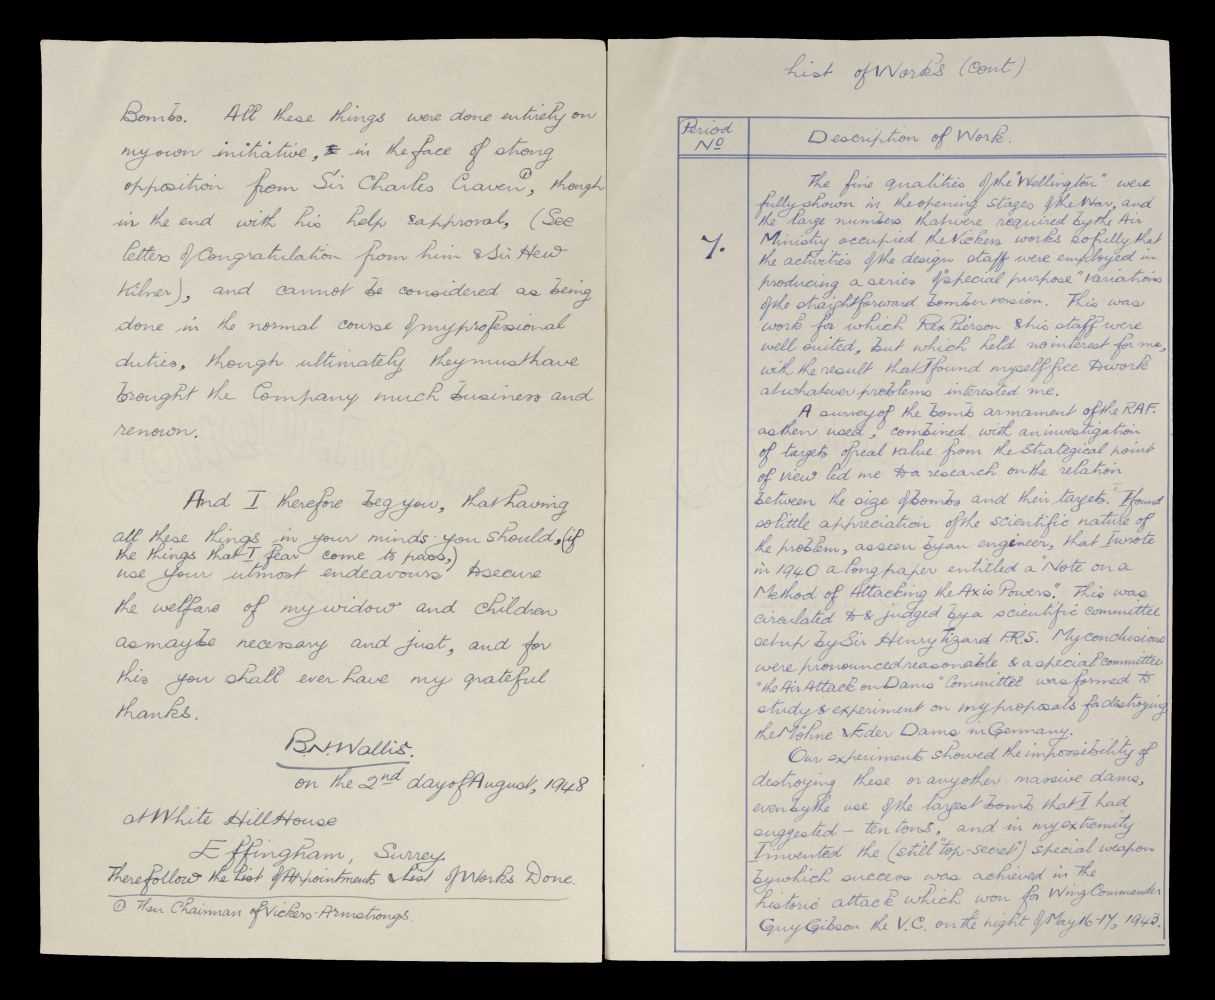 Bombs. All these things were done entirely on
my own initiative, & in the face of strong
opposition from Sir Charles Craven①, though
in the end with his help & approval, (See
letters of Congratulation from him & Sir Hew
Kilner), and cannot be considered as being
done in the normal course of my professional
duties, though ultimately they must have
brought the Company much business and
renown.
And I therefore beg you, that having
all these things in your minds you should, (if
the things that I fear come to pass,)
use your utmost endeavours to secure
the welfare of my widow and children
as may be necessary and just, and for
this you shall ever have my grateful
thanks.
B.N. Wallis.
on the 2nd day of August, 1948
at White Hill House
Effingham, Surrey.
There follow the List of Appointments & List of Works Done.
① Then Chairman of Vickers-Armstrongs.
List of Works (cont)
Period
No
Description of Work.
7.
The fine qualities of the "Wellington" were
fully shown in the opening stages of the War, and
the large numbers that were required by the Air
Ministry occupied the Vickers works so fully that
the activities of the design staff were employed in
producing a series of "special purpose" variations
of the straightforward bomber version. This was
work for which Rex Pierson & his staff were
well suited, but which held no interest for me,
with the result that I found myself free to work
at whatever problems interested me.
A survey of the bomb armament of the RAF.
as then used, combined with an investigation
of targets of real value from the strategical point
of view led me to a research on the relation
between the size of bombs and their targets. I found
so little appreciation of the scientific nature of
the problem, as seen by an engineer, that I wrote
in 1940 a long paper entitled a "Note on a
Method of Attacking the Axis Powers". This was
circulated to & judged by a scientific committee
set up by Sir Henry Tizard F.R.S. My conclusions
were pronounced reasonable & a special committee
"the Air Attack on Dams" Committee was formed to
study & experiment on my proposals for destroying
the Möhne & Eder Dams in Germany.
Our experiments showed the impossibility of
destroying these or any other massive dams,
even by the use of the largest bomb that I had
suggested – ten tons, and in my extremity
I invented the (still "top-secret") special weapon
by which success was achieved in the
historic attack which won for Wing Commander
Guy Gibson the V.C. on the night of May 16-17, 1943.